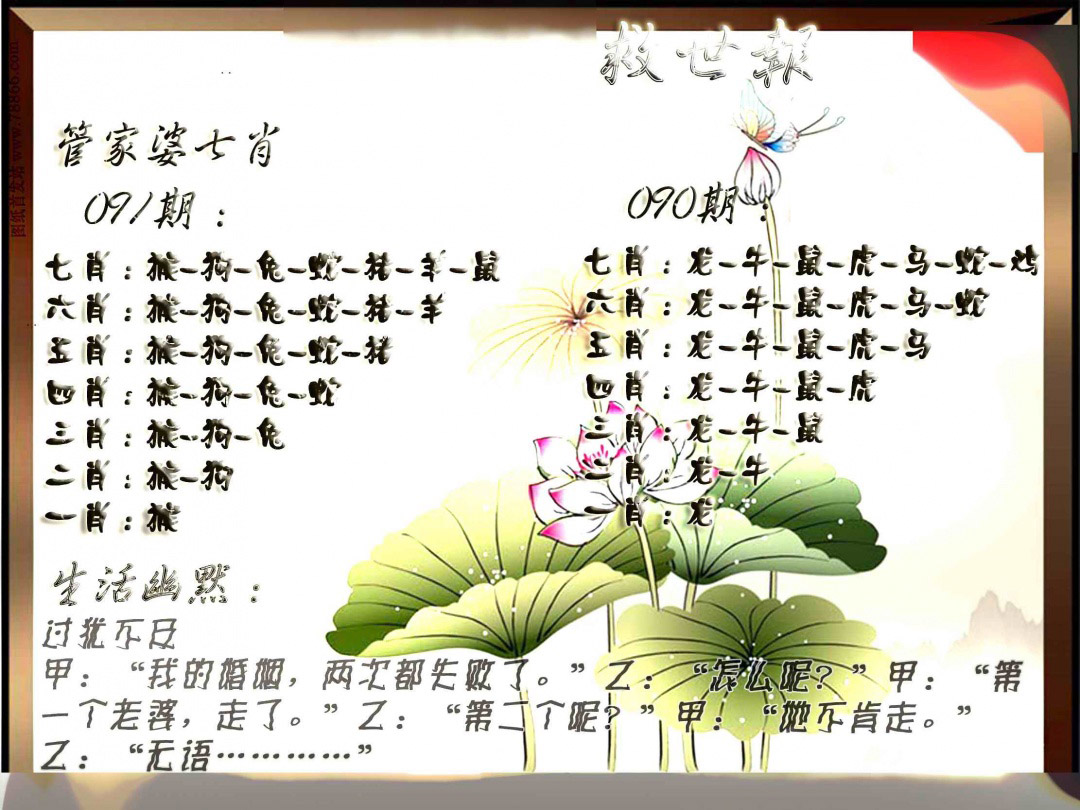 救世報
管家婆七肖
091期：
七肖：猴-狗-兔-蛇-猪-羊-鼠
六肖：猴-狗-兔-蛇-猪-羊
五肖：猴-狗-兔-蛇-猪
四肖：猴-狗-兔-蛇
三肖：猴-狗-兔
二肖：猴-狗
一肖：猴
090期：
七肖：龙-牛-鼠-虎-马-蛇-鸡
六肖：龙-牛-鼠-虎-马-蛇
五肖：龙-牛-鼠-虎-马
四肖：龙-牛-鼠-虎
三肖：龙-牛-鼠
二肖：龙-牛
一肖：龙
生活幽默：
过犹不及
甲：“我的婚姻，两次都失败了。”乙：“怎么呢？”甲：“第
一个老婆，走了。”乙：“第二个呢？”甲：“她不肯走。”
乙：“无语…………”
图纸首发站 www.78866.com